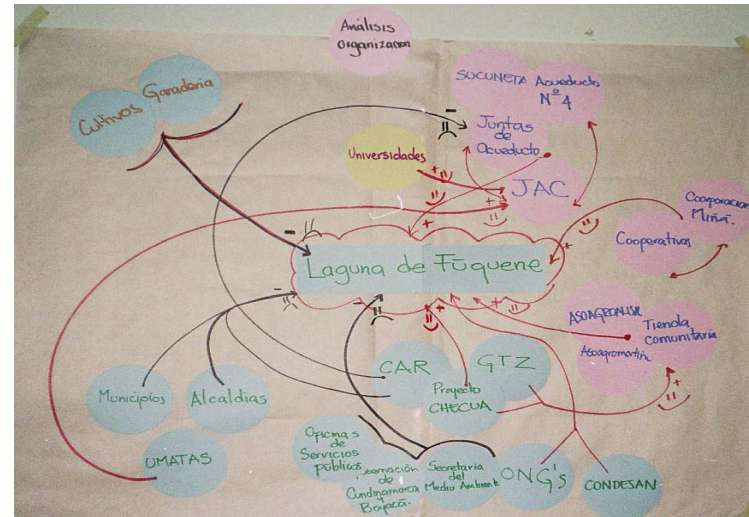 Análisis
Organización
Cultivos
Ganadería
SUCUNETA
Acueducto
Nº 4
Juntas
de
acueducto
Universidades
JAC
Cooperativas
Laguna de Fúquene
ASOAGROALISK
Asoagromortiñ
Tienda
comunitaria
CAR
GTZ
Proyecto
CHECUA
Municipios
Alcaldías
UMATAS
Oficinas
de
Servicios
Públicos
de
Cundinamarca
y
Boyacá.
Secretaria
del
Medio Ambiente
ONG's
CONDESAN